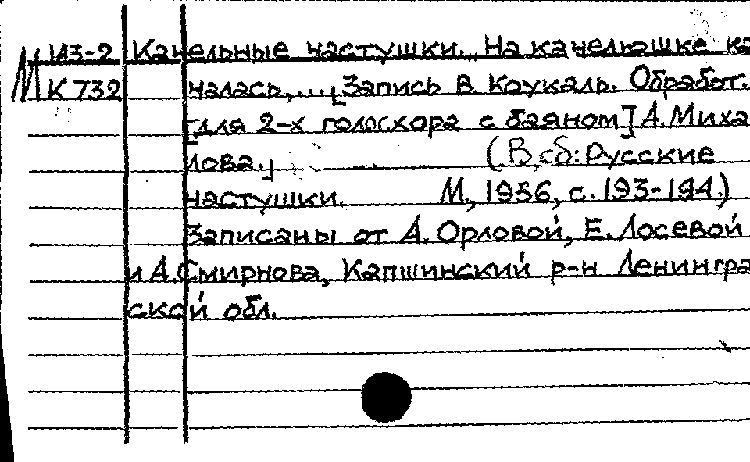 М из-2 Качельные частушки. На качелюшке ка
К 732 чалась,... [Запись В. Коукаль. Обработ.
[для 2-х голос. хора с баяном] А. Миха
лова.] (В сб.: Русские
частушки. М., 1956, с. 193-194.)
Записаны от А. Орловой, Е. Лосевой
и А. Смирнова, Капшинский р-н Ленингра
ской обл.